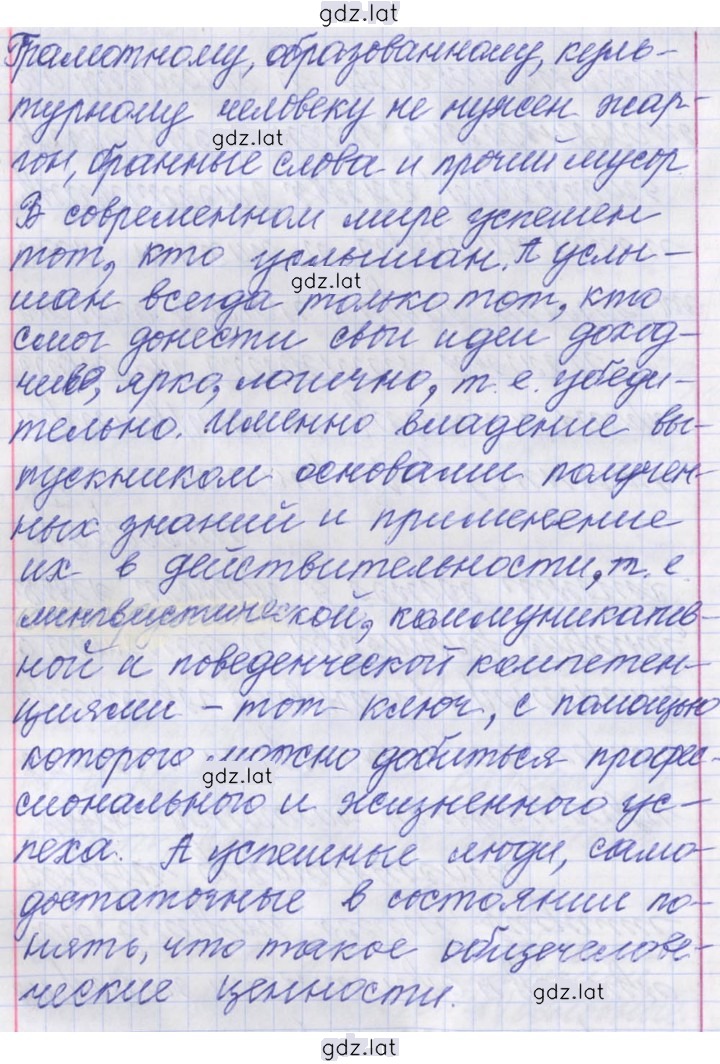 gdz.lat
Грамотному, образованному, куль-
турному человеку не нужен жар-
gdz.lat
гон, бранные слова и прочий мусор.
В современном мире успешен
тот, кто услышан. А услы-
gdz.lat
шан всегда только тот, кто
смог донести свои идеи доход-
чиво, ярко, логично, т.е. убеди-
тельно. Именно владение вы-
пускником основами получен-
ных знаний и применение
их в действительности, т.е.
лингвистической, коммуникатив-
ной и поведенческой компетен-
циями – тот ключ, с помощью
которого можно добиться профес-
gdz.lat
сионального и жизненного ус-
пеха. А успешные люди, само-
достаточные в состоянии по-
нять, что такое общечелове-
ческие ценности.
gdz.lat
gdz.lat